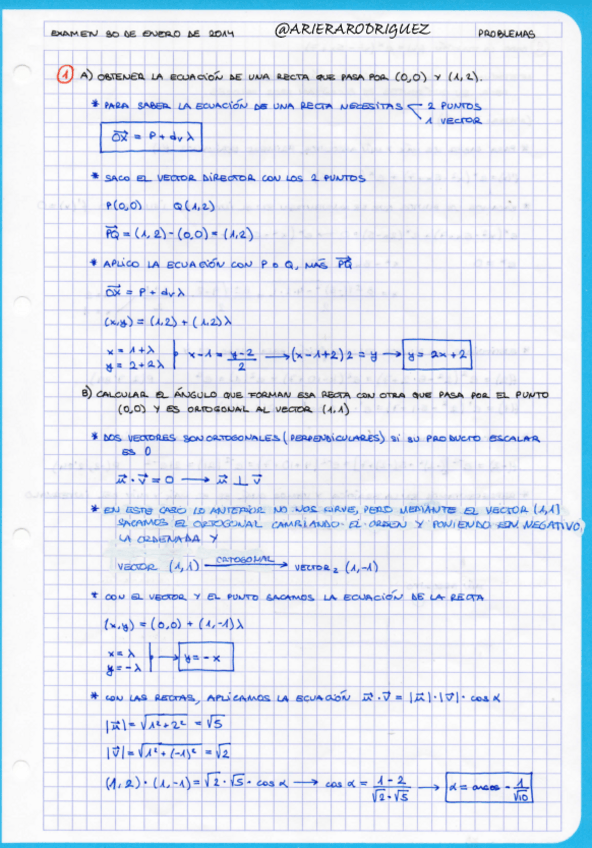 EXAMEN 30 DE ENERO DE 2014 @ARIERARODRIGUEZ PROBLEMAS
1 A) OBTENER LA ECUACIÓN DE UNA RECTA QUE PASA POR (0,0) Y (1,2).
* PARA SABER LA ECUACIÓN DE UNA RECTA NECESITAS < 2 PUNTOS
1 VECTOR
OX⃗ = P + dᵥ λ
* SACO EL VECTOR DIRECTOR CON LOS 2 PUNTOS
P(0,0) Q(1,2)
PQ⃗ = (1,2)-(0,0) = (1,2)
* APLICO LA ECUACIÓN CON P O Q, MÁS PQ⃗
OX⃗ = P + dᵥ λ
(x,y) = (1,2) + (1,2)λ
x = 1+λ
y = 2+2λ | x-1 = (y-2)/2 → (x-1+2)2 = y → y = 2x+2
B) CALCULAR EL ÁNGULO QUE FORMAN ESA RECTA CON OTRA QUE PASA POR EL PUNTO
(0,0) Y ES ORTOGONAL AL VECTOR (1,1)
* DOS VECTORES SON ORTOGONALES (PERPENDICULARES) SI SU PRODUCTO ESCALAR
ES 0
u⃗ · v⃗ = 0 → u⃗ ⊥ v⃗
* EN ESTE CASO LO ANTERIOR NO NOS SIRVE, PERO MEDIANTE EL VECTOR (1,1)
SACAMOS EL ORTOGONAL CAMBIANDO EL ORDEN Y PONIENDO EN NEGATIVO
LA ORDENADA Y
VECTOR (1,1) ORTOGONAL → VECTOR₂ (1,-1)
* CON EL VECTOR Y EL PUNTO SACAMOS LA ECUACIÓN DE LA RECTA
(x,y) = (0,0) + (1,-1)λ
x = λ
y = -λ | → y = -x
* CON LAS RECTAS, APLICAMOS LA ECUACIÓN u⃗ · v⃗ = |u⃗| · |v⃗| · cos α
|u⃗| = √(1²+2²) = √5
|v⃗| = √(1²+(-1)²) = √2
(1,2) · (1,-1) = √2 · √5 · cos α → cos α = (1-2)/(√2·√5) → α = arcos - 1/√10